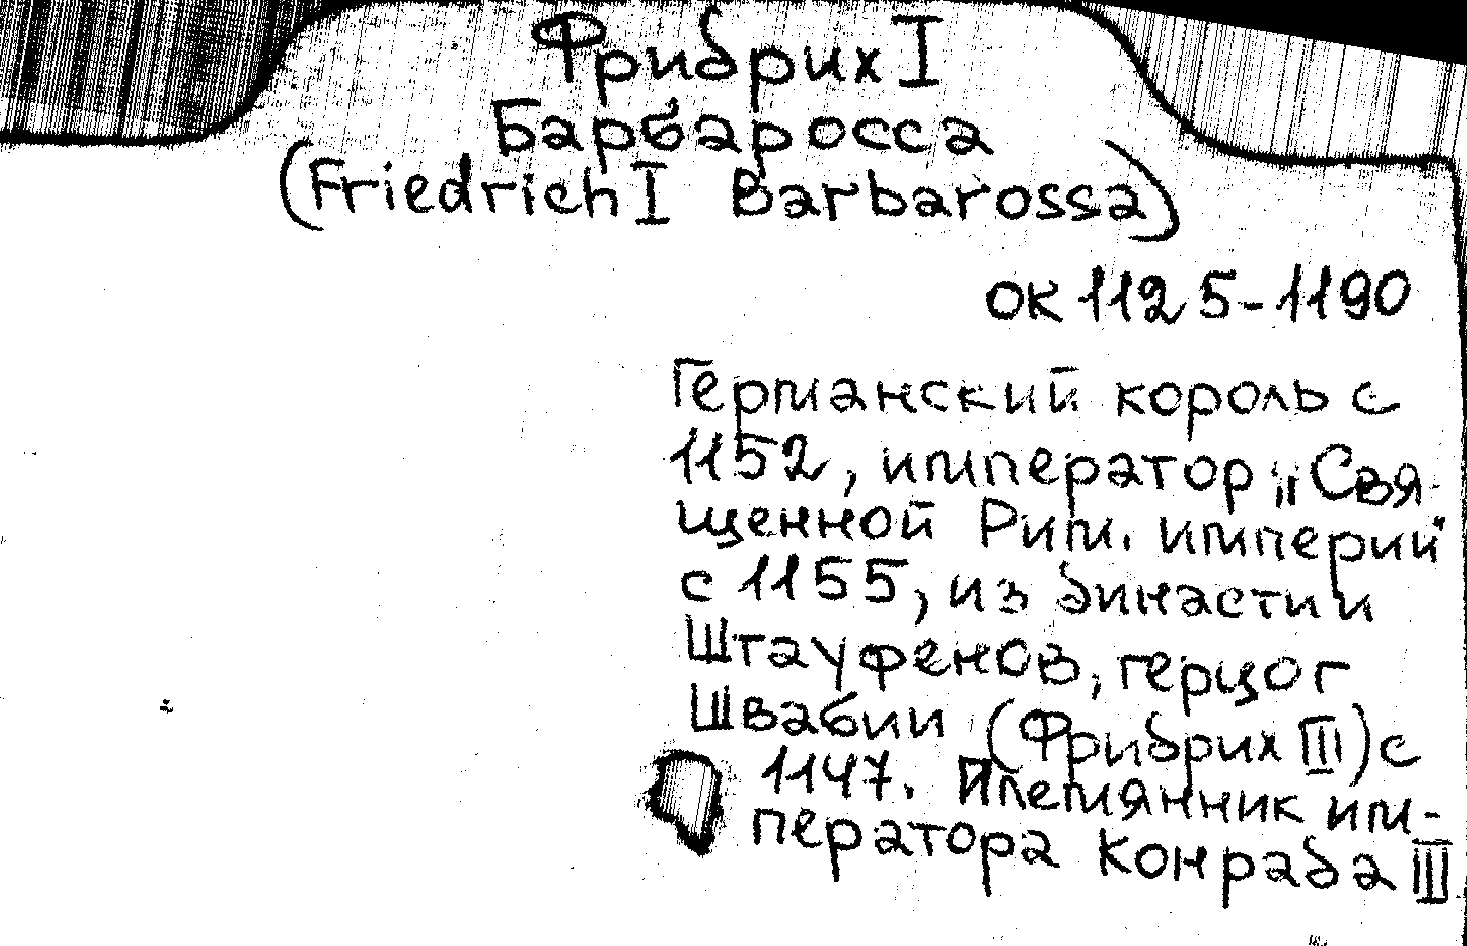 Фридрих I
Барбаросса
(Friedrich I Barbarossa)
ок 1125-1190
Германский король с
1152, император „Свя-
щенной Рим. империи"
с 1155, из династии
Штауфенов, герцог
Швабии (Фридрих III) с
1147. Племянник им-
ператора Конрада III